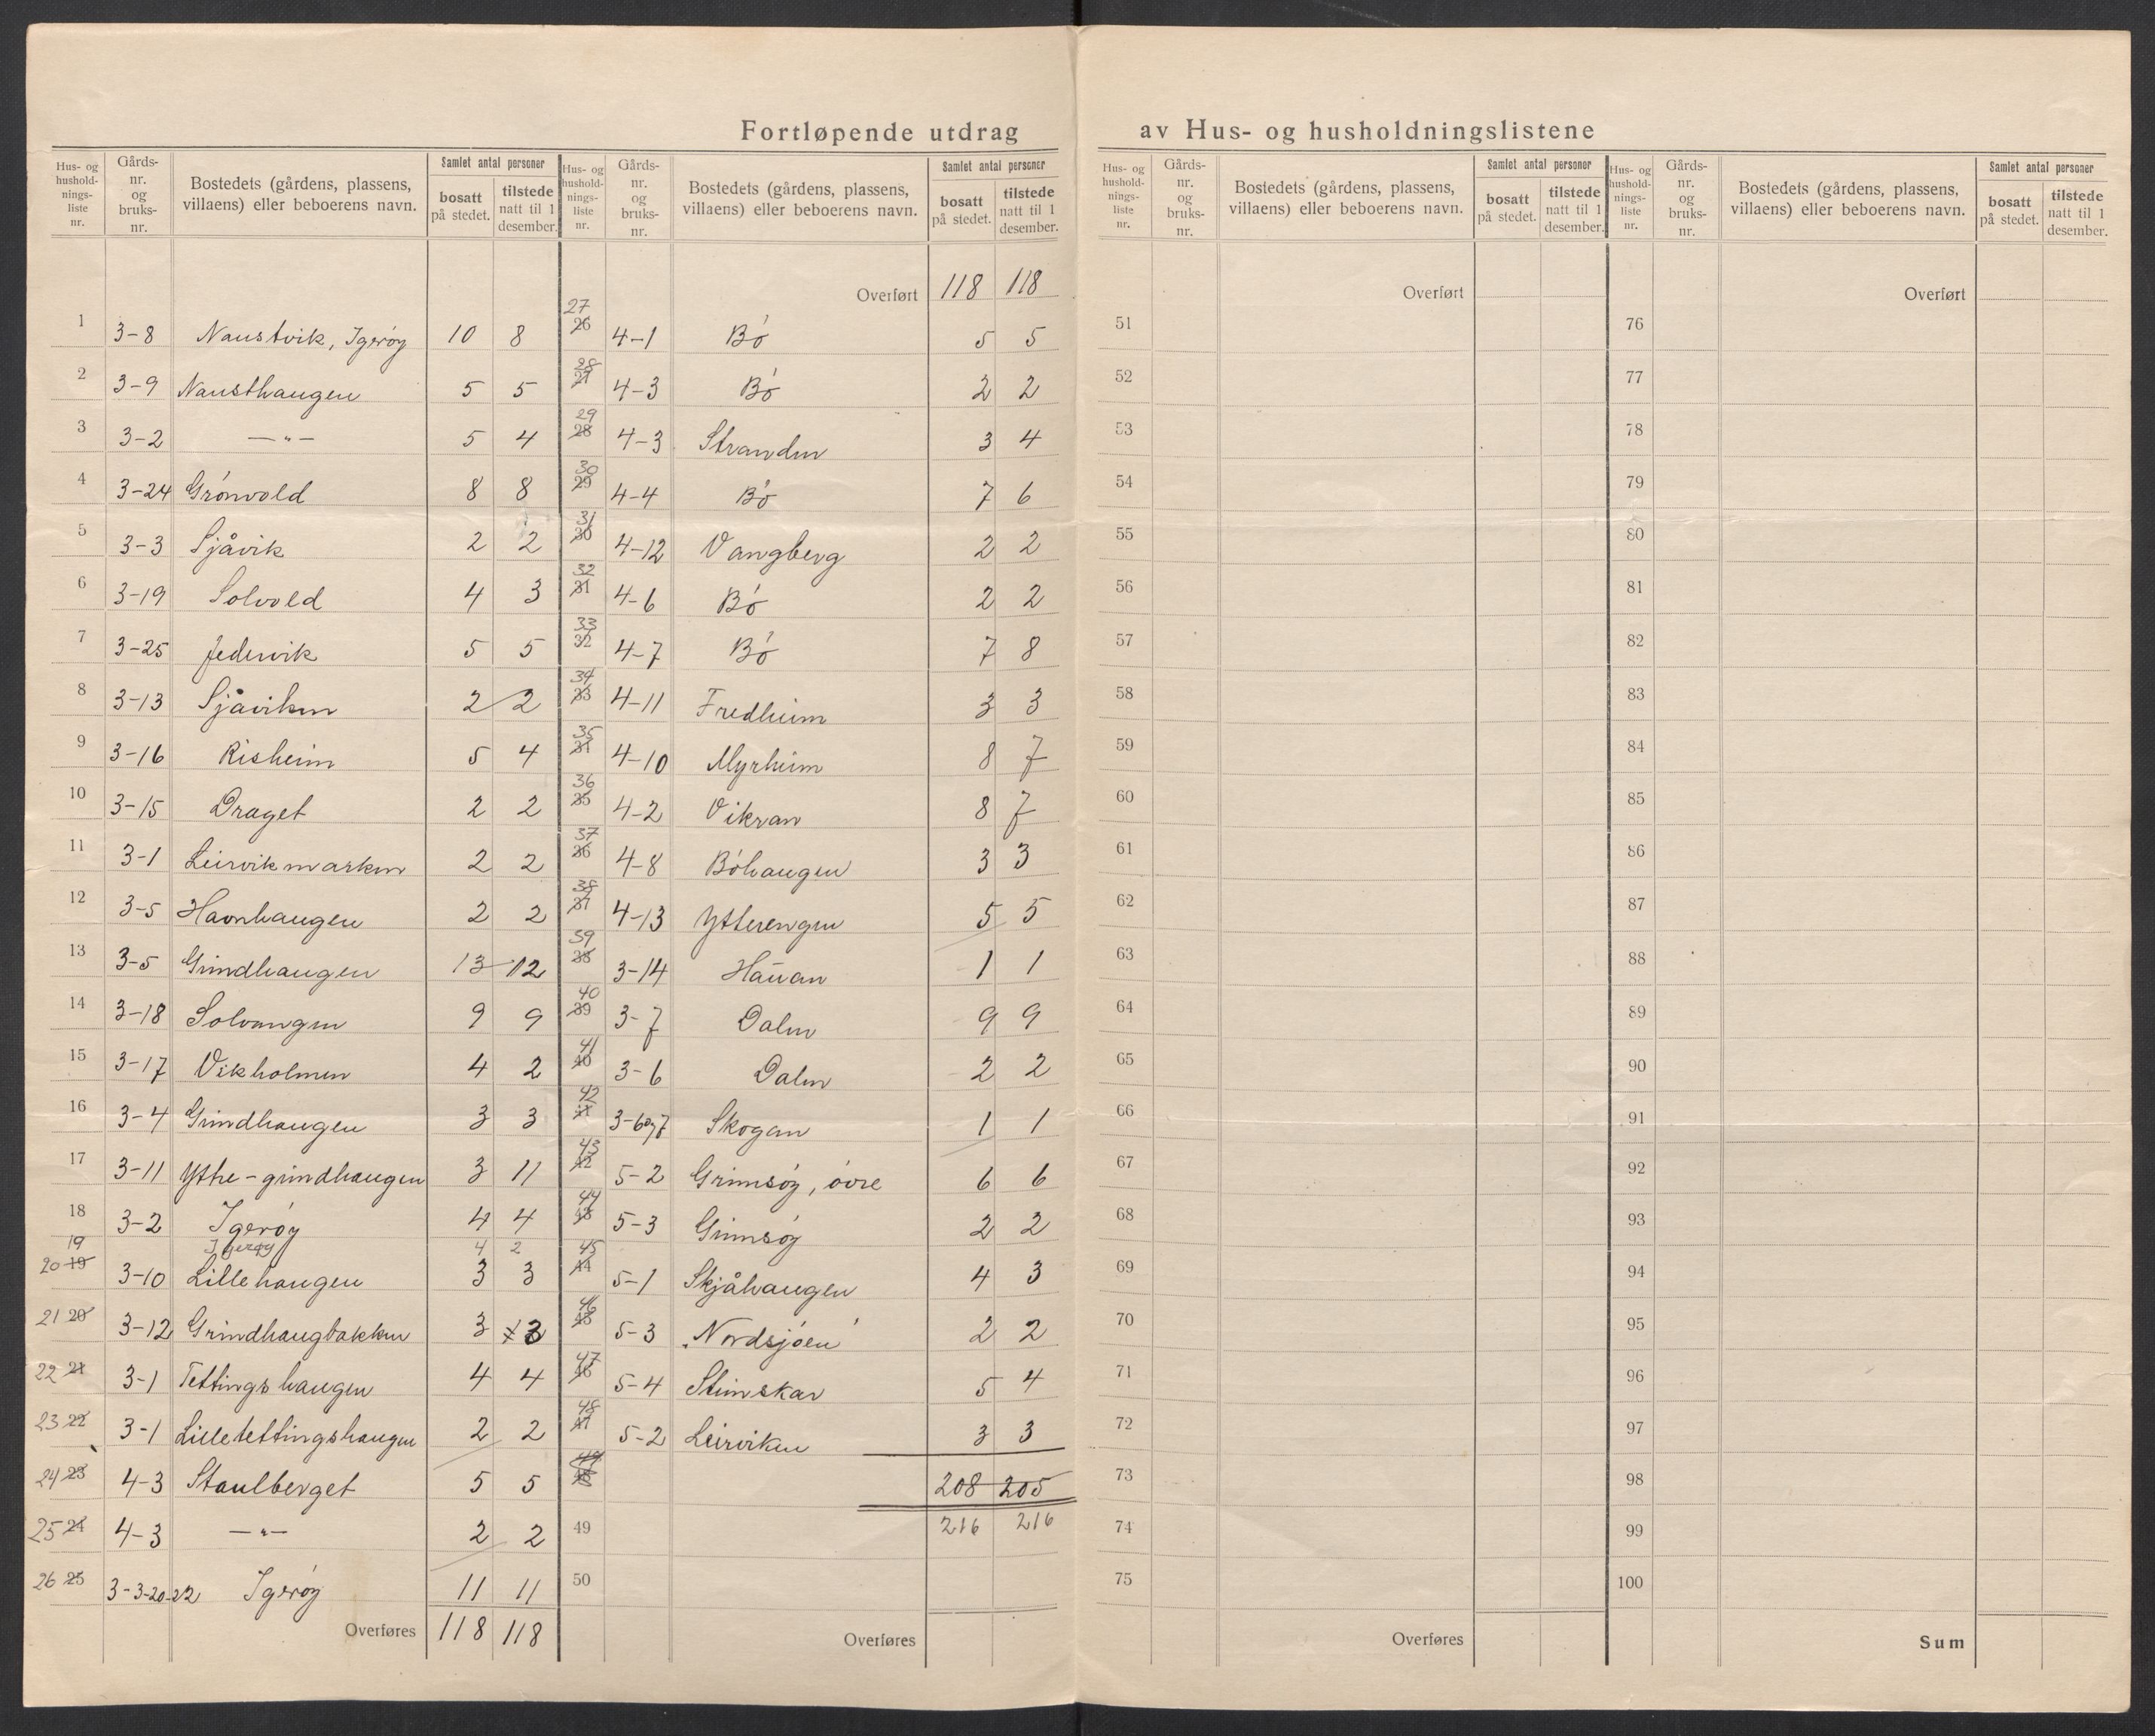 Fortløpende utdrag av Hus- og husholdningslistene
Hus- og hushold-nings-liste nr. Gårds-nr. og bruks-nr. Bostedets (gårdens, plassens, villaens) eller beboerens navn. Samlet antal personer bosatt på stedet. tilstede natt til 1 desember.
1 3-8 Naustvik, Igerøy 10 8
2 3-9 Nausthaugen 5 5
3 3-2 —„— 5 4
4 3-24 Grónvold 8 8
5 3-3 Sjåvik 2 2
6 3-19 Solvold 4 3
7 3-25 Jedervik 5 5
8 3-13 Sjåviken 2 2
9 3-16 Risheim 5 4
10 3-15 Draget 2 2
11 3-1 Leirvikmarken 2 2
12 3-5 Havnhaugen 2 2
13 3-5 Grindhaugen 13 12
14 3-18 Solvangen 9 9
15 3-17 Vikholmen 4 2
16 3-4 Grindhaugen 3 3
17 3-11 Ytre-grindhaugen 3 11
18 3-2 Igerøy 4 4
19 Igerøy 4 2
20 19 3-10 Lillehaugen 3 3
21 20 3-12 Grindhaugbakken 3 3
22 21 3-1 Tettingshaugen 4 4
23 22 3-1 Lilletettingshaugen 2 2
24 23 4-3 Staulberget 5 5
25 24 4-3 —„— 2 2
26 25 3-3-20-22 Igerøy 11 11
Overføres 118 118
Hus- og hushold-nings-liste nr. Gårds-nr. og bruks-nr. Bostedets (gårdens, plassens, villaens) eller beboerens navn. Samlet antal personer bosatt på stedet. tilstede natt til 1 desember.
Overført 118 118
27 26 4-1 Bó 5 5
28 27 4-3 Bó 2 2
29 28 4-3 Stranden 3 4
30 29 4-4 Bó 7 6
31 30 4-12 Vangberg 2 2
32 31 4-6 Bó 2 2
33 32 4-7 Bó 7 8
34 33 4-11 Fredheim 3 3
35 34 4-10 Myrheim 8 7
36 35 4-2 Vikran 8 7
37 36 4-8 Bóhaugen 3 3
38 37 4-13 Ytterengen 5 5
39 38 3-14 Hauan 1 1
40 39 3-7 Dalen 9 9
41 40 3-6 Dalen 2 2
42 41 3-6og7 Skogan 1 1
43 42 5-2 Grimsóy, óvre 6 6
44 43 5-3 Grimsóy 2 2
45 44 5-1 Skjåhaugen 4 3
46 45 5-3 "Nordsjóen" 2 2
47 46 5-4 Steinskar 5 4
48 47 5-2 Leirviken 3 3
49 48 208 205
49 216 216
50
Overføres
Hus- og hushold-nings-liste nr. Gårds-nr. og bruks-nr. Bostedets (gårdens, plassens, villaens) eller beboerens navn. Samlet antal personer bosatt på stedet. tilstede natt til 1 desember.
Overført
51
52
53
54
55
56
57
58
59
60
61
62
63
64
65
66
67
68
69
70
71
72
73
74
75
Overføres
Hus- og hushold-nings-liste nr. Gårds-nr. og bruks-nr. Bostedets (gårdens, plassens, villaens) eller beboerens navn. Samlet antal personer bosatt på stedet. tilstede natt til 1 desember.
Overført
76
77
78
79
80
81
82
83
84
85
86
87
88
89
90
91
92
93
94
95
96
97
98
99
100
Sum